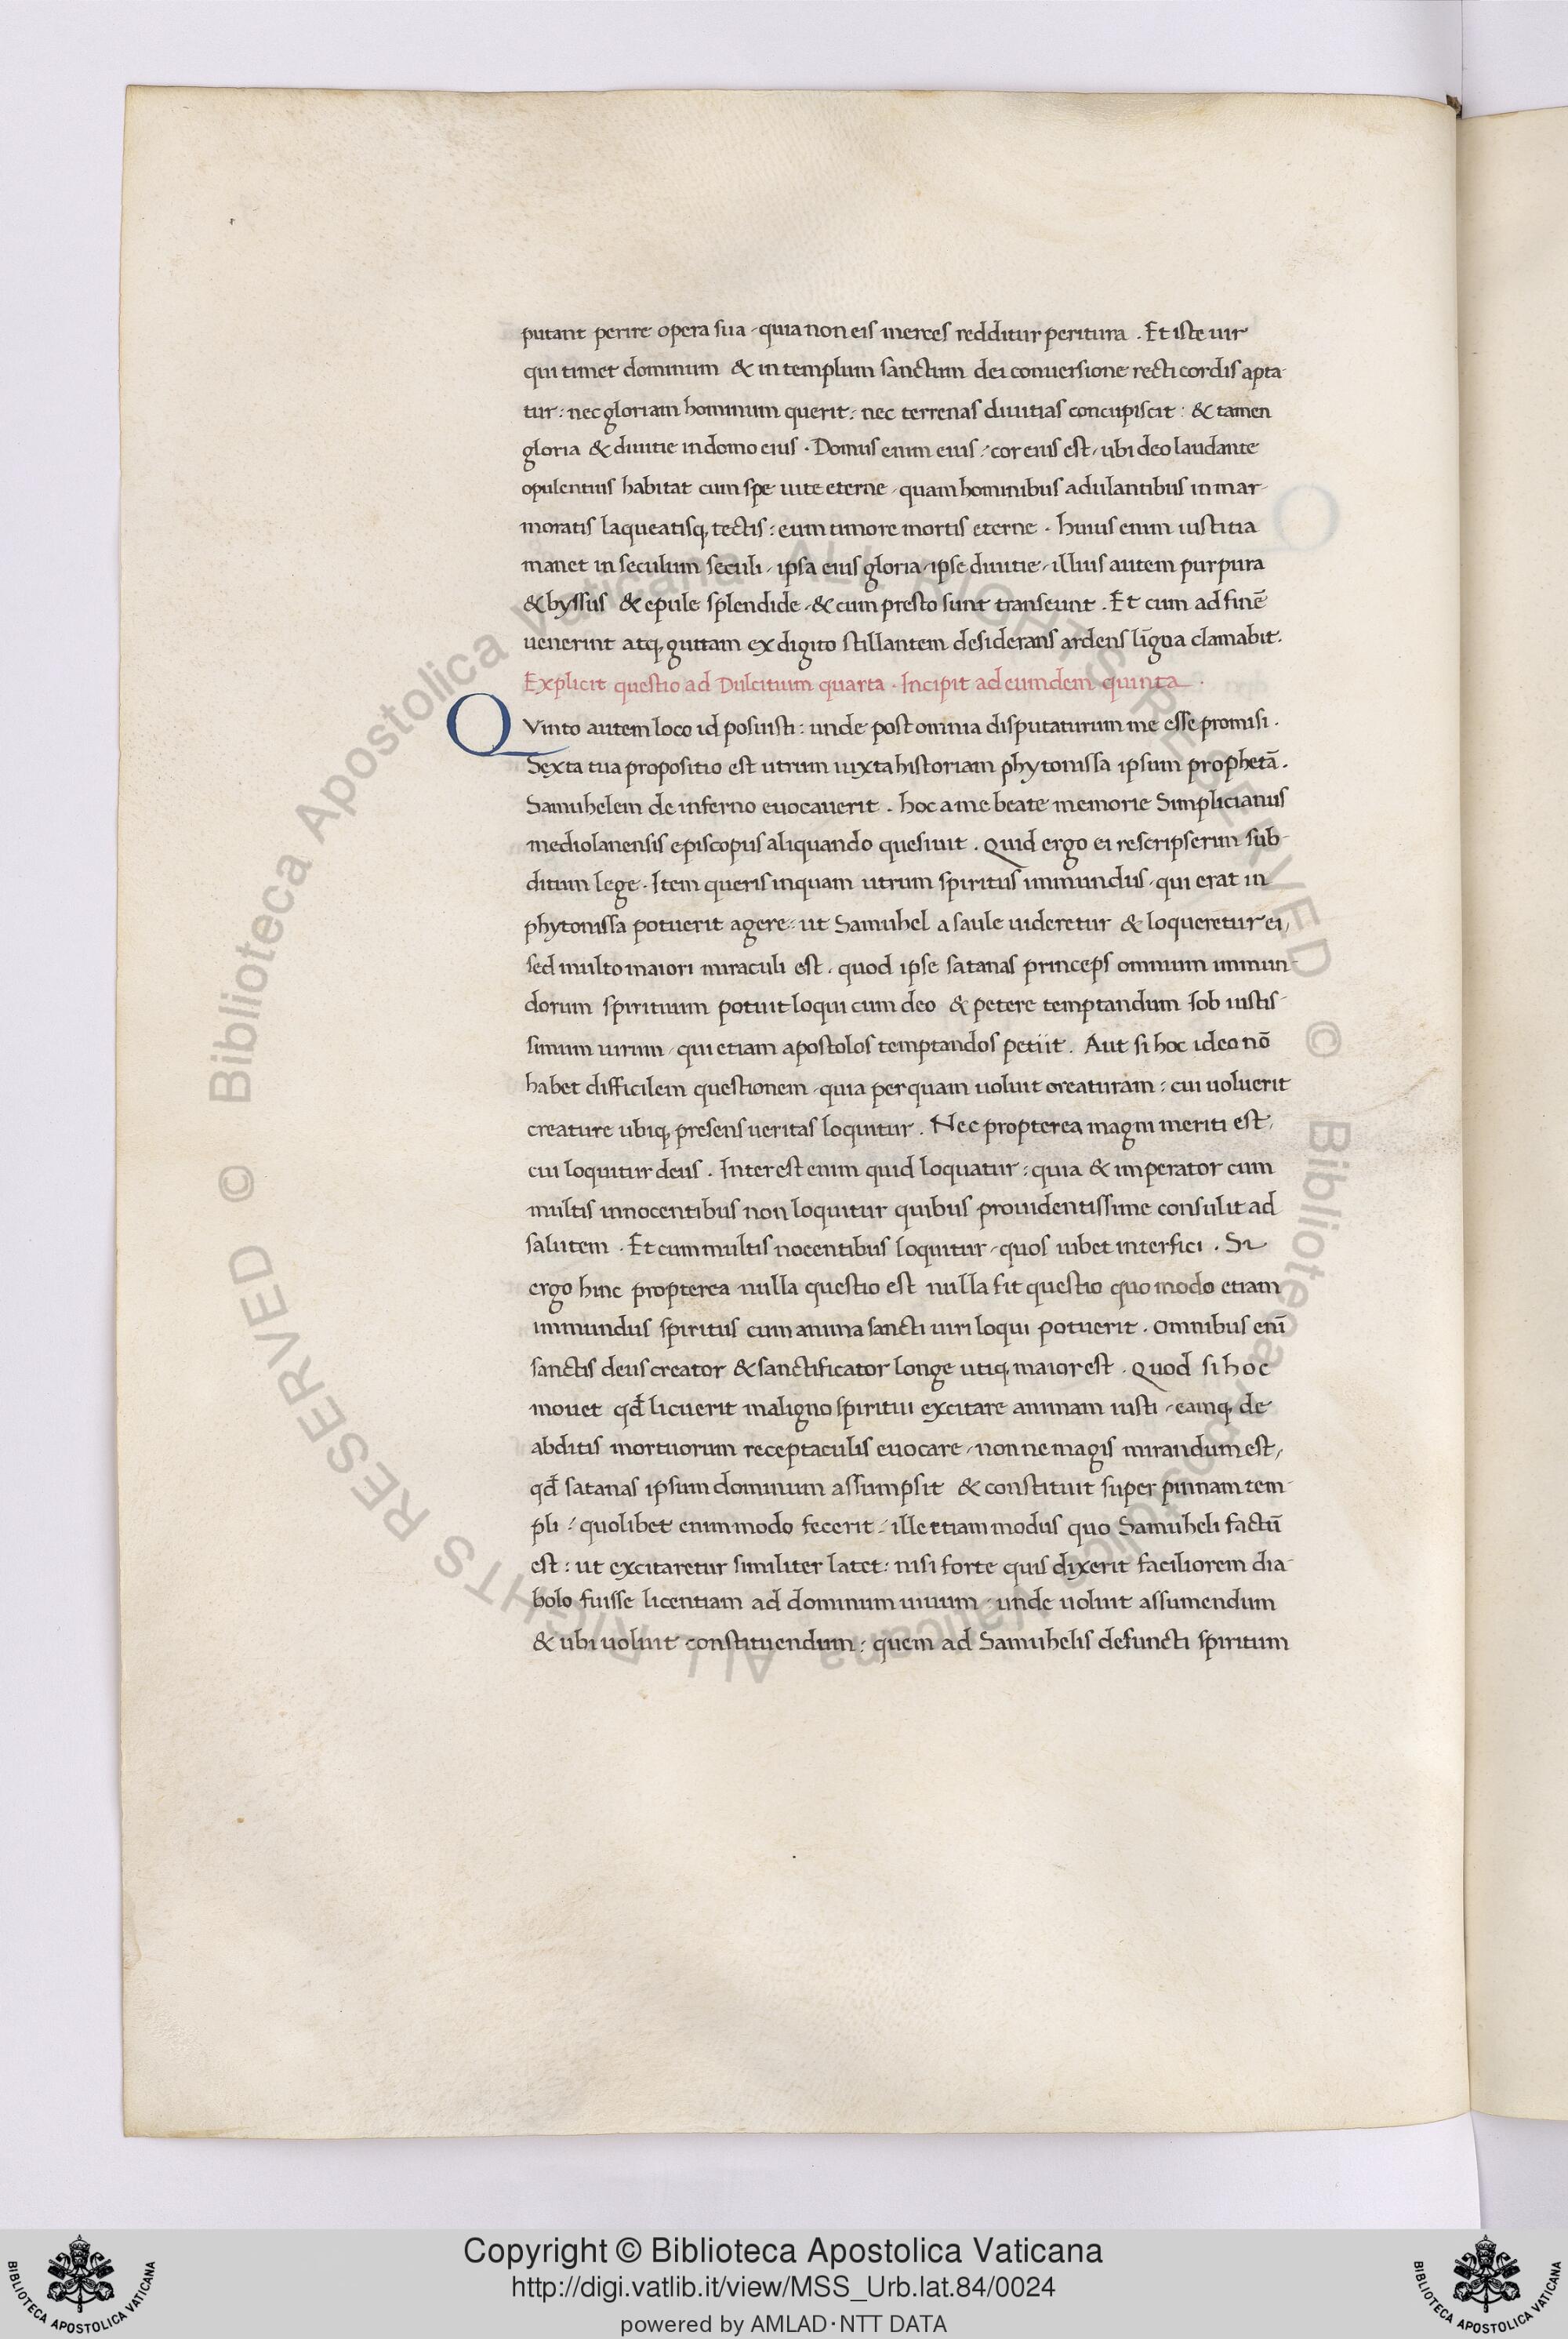 putant perire opera sua, quia non eis merces redditur peritura. Et iste uir
qui timet dominum & in templum sanctum dei conuersione recti cordis apta
tur: nec gloriam hominum querit: nec terrenas diuitias concupiscit: & tamen
gloria & diuitie in domo eius. Domus enim eius: cor eius est, ubi deo laudante
opulentius habitat cum spe uite eterne, quam hominibus adulantibus in mar-
moratis laqueatisq; tectis: cum timore mortis eterne. Huius enim iustitia
manet in seculum seculi, ipsa eius gloria, ipse diuitie, illius autem purpura
& byssus & epule splendide, & cum presto sunt transeunt. Et cum ad finē
uenerint atq; guttam ex digito stillantem desiderans ardens līgua clamabit.
Explicit questio ad Dulcitium quarta. Incipit ad eumdem quinta.
QVinto autem loco id posuisti: unde post omnia disputaturum me esse promisi.
Sexta tua propositio est utrum iuxta historiam phytonissa ipsum prophetā.
Samuhelem de inferno euocauerit. hoc a me beate memorie Simplicianus
mediolanensis episcopus aliquando quesiuit. Quid ergo ei rescripserim sub-
ditum lege. Item queris inquam utrum spiritus immundus, qui erat in
phytonissa potuerit agere: ut Samuhel a saule uideretur & loqueretur ei,
sed multo maiori miraculi est, quod ipse satanas princeps omnium immun-
dorum spirituum potuit loqui cum deo & petere temptandum Iob iustis-
simum uirum, qui etiam apostolos temptandos petiit. Aut si hoc ideo nō
habet difficilem questionem, quia per quam uoluit creaturam: cui uoluerit
creature ubiq; presens ueritas loquitur. Nec propterea magni meriti est,
cui loquitur deus. Interest enim quid loquatur: quia & imperator cum
multis innocentibus non loquitur quibus prouidentissime consulit ad
salutem. Et cum multis nocentibus loquitur, quos iubet interfici. Si
ergo hinc propterea nulla questio est nulla fit questio quo modo etiam
immundus spiritus cum anima sancti uiri loqui potuerit. Omnibus enī
sanctis deus creator & sanctificator longe utiq; maior est. Quod si hoc
mouet qđ licuerit maligno spiritui excitare animam iusti, eamq; de
abditis mortuorum receptaculis euocare, non ne magis mirandum est,
qđ satanas ipsum dominum assumpsit & constituit super pinnam tem-
pli: quolibet enim modo fecerit: ille etiam modus quo Samuheli factū
est: ut excitaretur similiter latet: nisi forte quis dixerit faciliorem dia-
bolo fuisse licentiam ad dominum uiuum, unde uoluit assumendum
& ubi uoluit constituendum: quem ad Samuhelis defuncti spiritum
© Biblioteca Apostolica Vaticana ALL RIGHTS RESERVED © Biblioteca Apostolica Vaticana ALL RIGHTS RESERVED
Copyright © Biblioteca Apostolica Vaticana
http://digi.vatlib.it/view/MSS_Urb.lat.84/0024
powered by AMLAD·NTT DATA
BIBLIOTECA APOSTOLICA VATICANA
BIBLIOTECA APOSTOLICA VATICANA